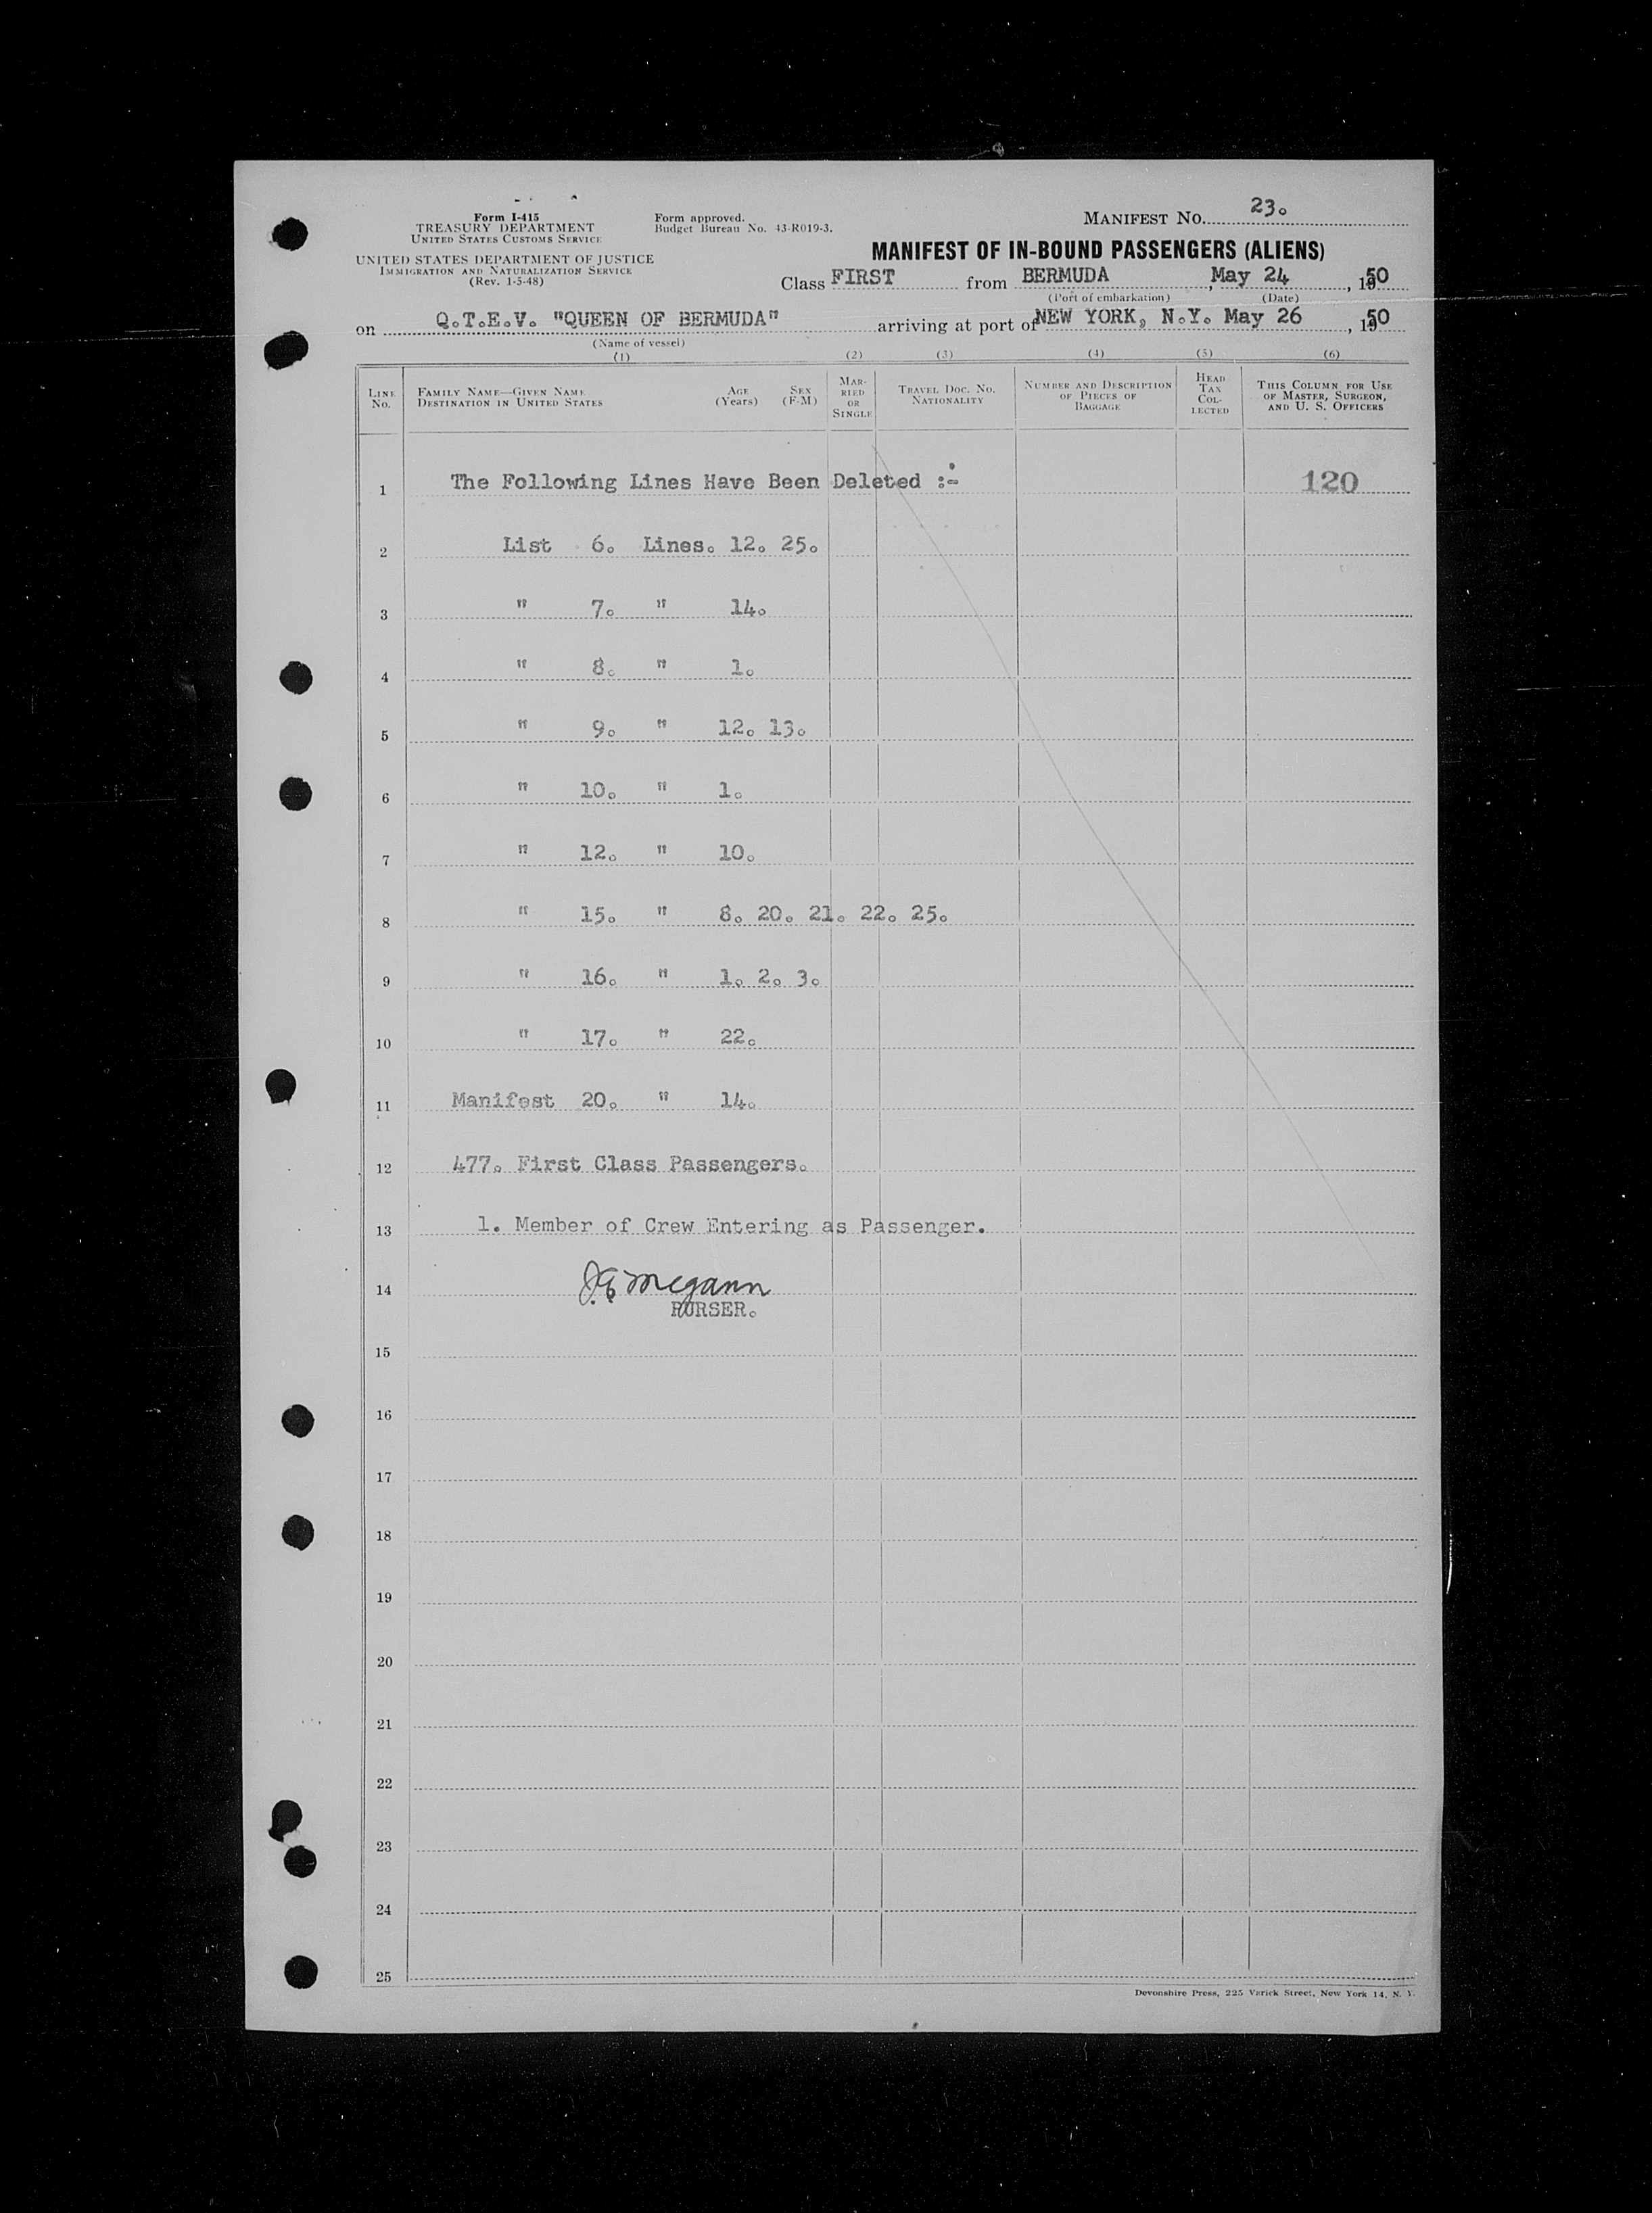 Form I-415
TREASURY DEPARTMENT
UNITED STATES CUSTOMS SERVICE
UNITED STATES DEPARTMENT OF JUSTICE
IMMIGRATION AND NATURALIZATION SERVICE
(Rev. 1-5-48)
Form approved.
Budget Bureau No. 43-R019-3.
MANIFEST NO. 23.
MANIFEST OF IN-BOUND PASSENGERS (ALIENS)
Class FIRST from BERMUDA, May 24, 1950
(Port of embarkation) (Date)
on Q.T.E.V. "QUEEN OF BERMUDA" arriving at port of NEW YORK, N.Y. May 26, 1950
(Name of vessel)
(1) (2) (3) (4) (5) (6)
LINE NO. FAMILY NAME—GIVEN NAME DESTINATION IN UNITED STATES AGE (Years) SEX (F-M) MARRIED OR SINGLE TRAVEL DOC. NO. NATIONALITY NUMBER AND DESCRIPTION OF PIECES OF BAGGAGE HEAD TAX COLLECTED THIS COLUMN FOR USE OF MASTER, SURGEON, AND U. S. OFFICERS
1 The Following Lines Have Been Deleted :- 120
2 List 6. Lines. 12. 25.
3 " 7. " 14.
4 " 8. " 1.
5 " 9. " 12. 13.
6 " 10. " 1.
7 " 12. " 10.
8 " 15. " 8. 20. 21. 22. 25.
9 " 16. " 1. 2. 3.
10 " 17. " 22.
11 Manifest 20. " 14.
12 477. First Class Passengers.
13 1. Member of Crew Entering as Passenger.
14 J.E. Mcgann
PURSER.
15
16
17
18
19
20
21
22
23
24
25
Devonshire Press, 225 Varick Street, New York 14, N. Y.